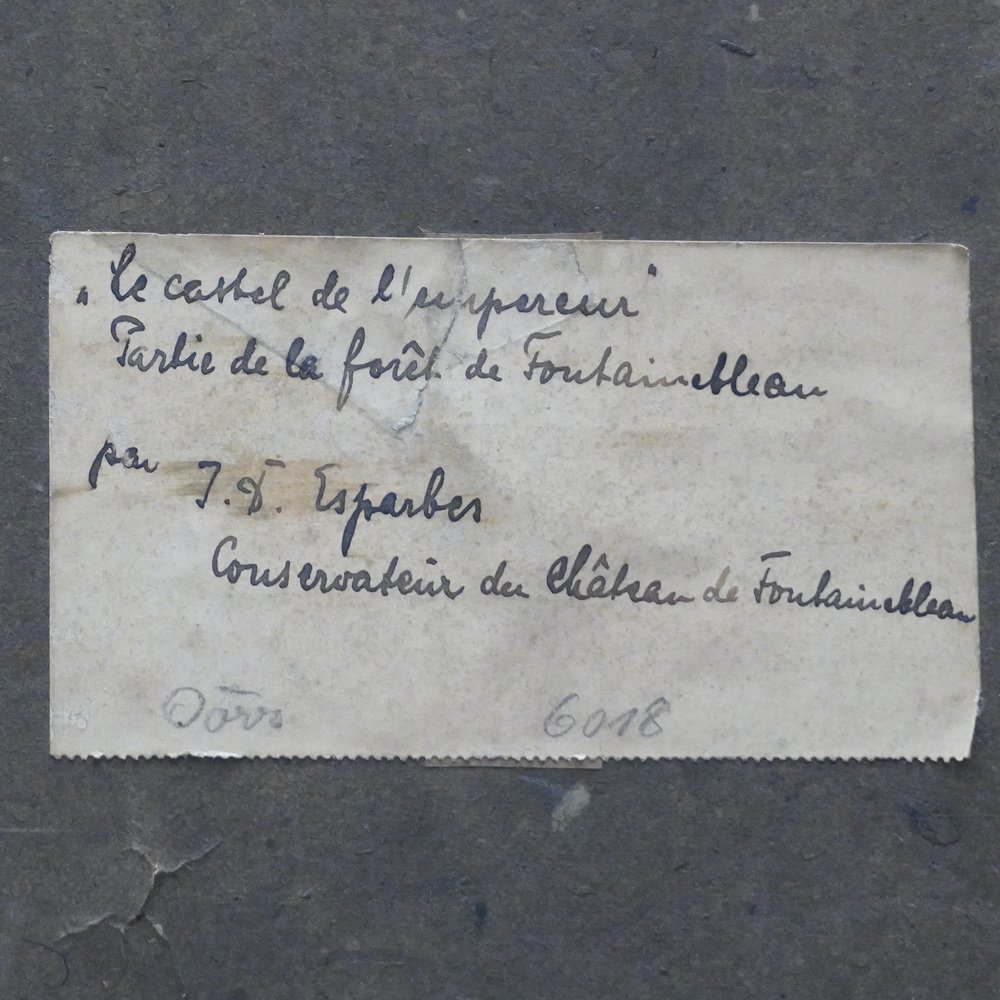 „Le castel de l'empereur"
Partie de la forêt de Fontainebleau
par J. D. Esparbes
Conservateur du Château de Fontainebleau
6018